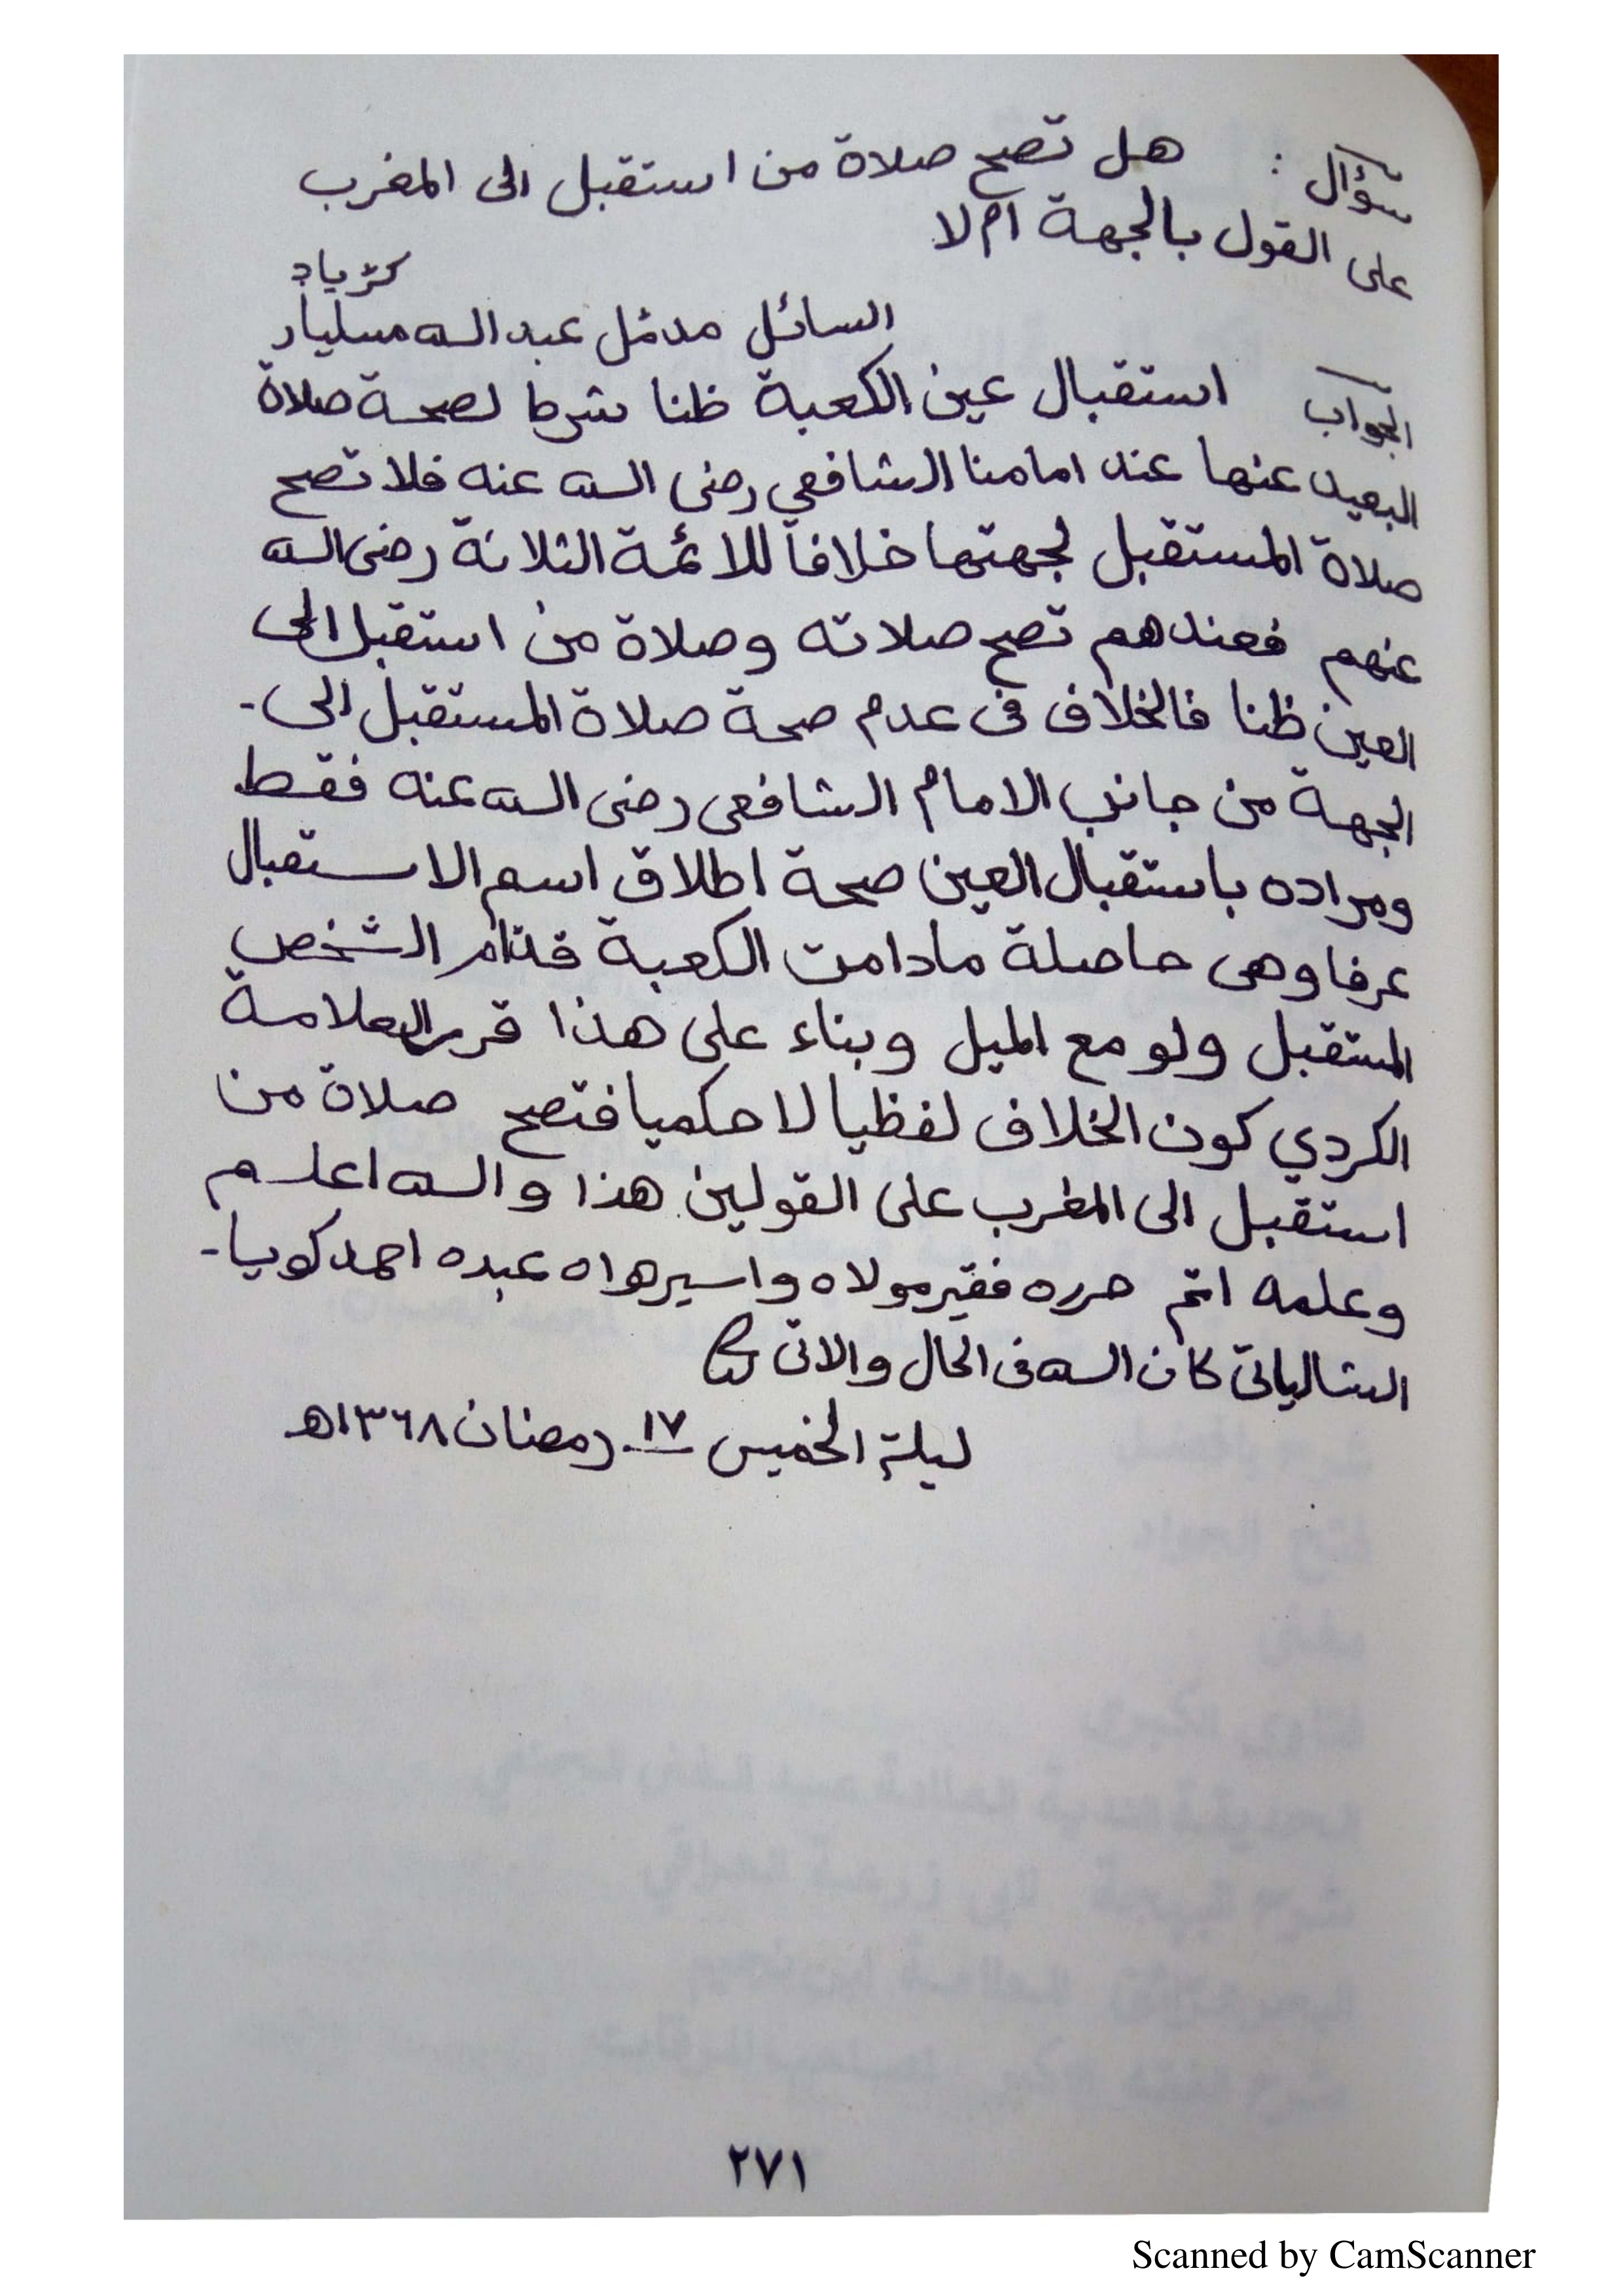 سؤال : هل تصح صلاة من استقبل الى المغرب
على القول بالجهة ام لا
السائل مدثل عبد الله مسليار
كڑياد
الجواب استقبال عين الكعبة ظنا شرط لصحة صلاة
البعيد عنها عند امامنا الشافعي رضى الله عنه فلا تصح
صلاة المستقبل لجهتها خلافا للائمة الثلاثة رضى الله
عنهم فعندهم تصح صلاته وصلاة من استقبل الى
العين ظنا فالخلاف فى عدم صحة صلاة المستقبل الى -
الجهة من جانب الامام الشافعى رضى الله عنه فقط
ومراده باستقبال العين صحة اطلاق اسم الاستقبال
عرفا وهى حاصلة مادامت الكعبة قدام الشخص
المستقبل ولو مع الميل وبناء على هذا قرر العلامة
الكردي كون الخلاف لفظيا لا حكميا فتصح صلاة من
استقبل الى المغرب على القولين هذا والله اعلم
وعلمه اتم حرره فقير مولاه واسير هواه عبده احمد كويا -
الشالياتى كان الله فى الحال والاتى
ليلة الخميس ١٧ رمضان ١٣٦٨هـ
٢٧١
Scanned by CamScanner